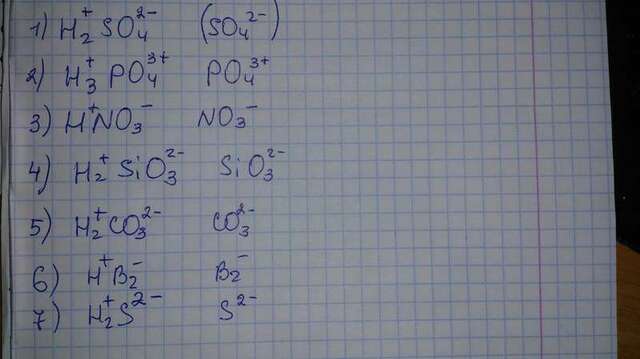 1) H₂⁺SO₄²⁻ (SO₄²⁻)
2) H₃⁺PO₄³⁺ PO₄³⁺
3) H⁺NO₃⁻ NO₃⁻
4) H₂⁺SiO₃²⁻ SiO₃²⁻
5) H₂⁺CO₃²⁻ CO₃²⁻
6) H⁺B₂⁻ B₂⁻
7) H₂⁺S²⁻ S²⁻